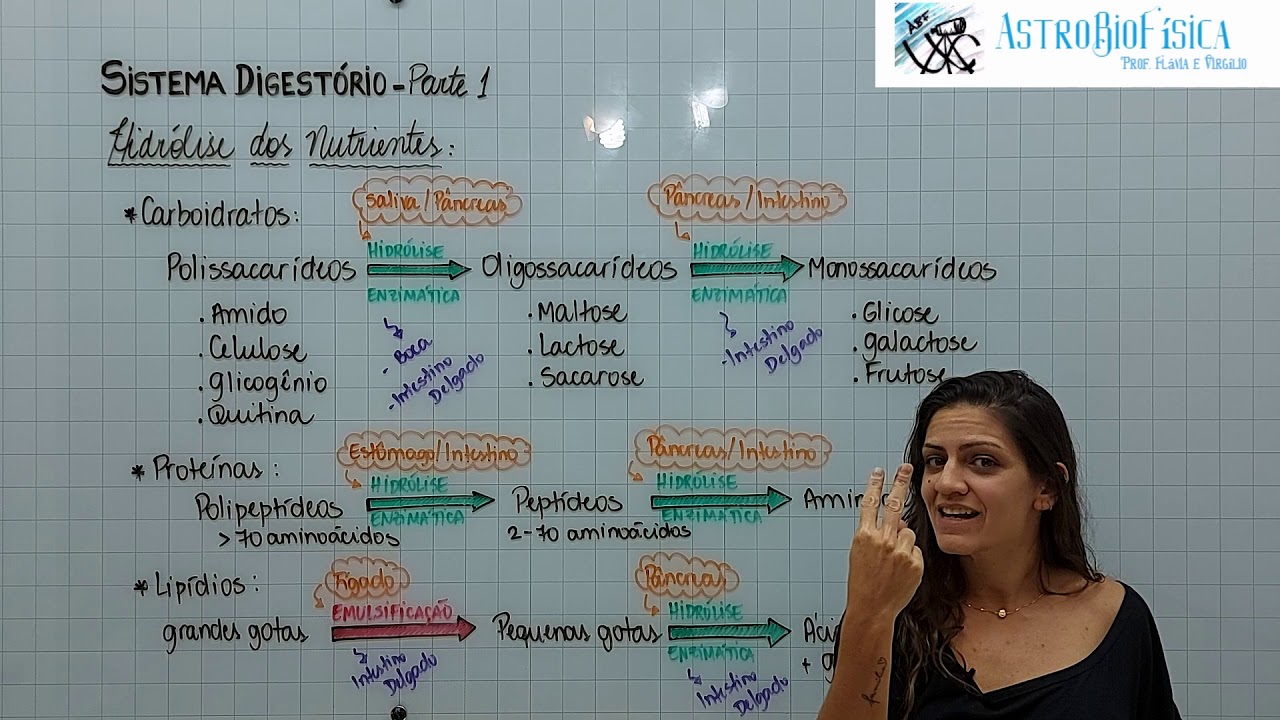 ABF
ASTROBIOFÍSICA
PROF. FLÁVIA E VIRGILIO
SISTEMA DIGESTÓRIO - Parte 1
Hidrólise dos Nutrientes:
* Carboidratos:
Saliva/Pâncreas
Pâncreas/Intestino
Polissacarídeos
HIDRÓLISE
ENZIMÁTICA
Oligossacarídeos
HIDRÓLISE
ENZIMÁTICA
Monossacarídeos
. Amido
. Celulose
. glicogênio
. Quitina
- Boca
- Intestino
Delgado
. Maltose
. Lactose
. Sacarose
- Intestino
Delgado
. Glicose
. galactose
. Frutose
* Proteínas:
Estômago/Intestino
Pâncreas/Intestino
Polipeptídeos
HIDRÓLISE
ENZIMÁTICA
Peptídeos
HIDRÓLISE
ENZIMÁTICA
> 70 aminoácidos
2-70 aminoácidos
* Lipídios:
Fígado
Pâncreas
grandes gotas
EMULSIFICAÇÃO
Pequenas gotas
HIDRÓLISE
ENZIMÁTICA
Intestino
Delgado
Intestino
Delgado
+